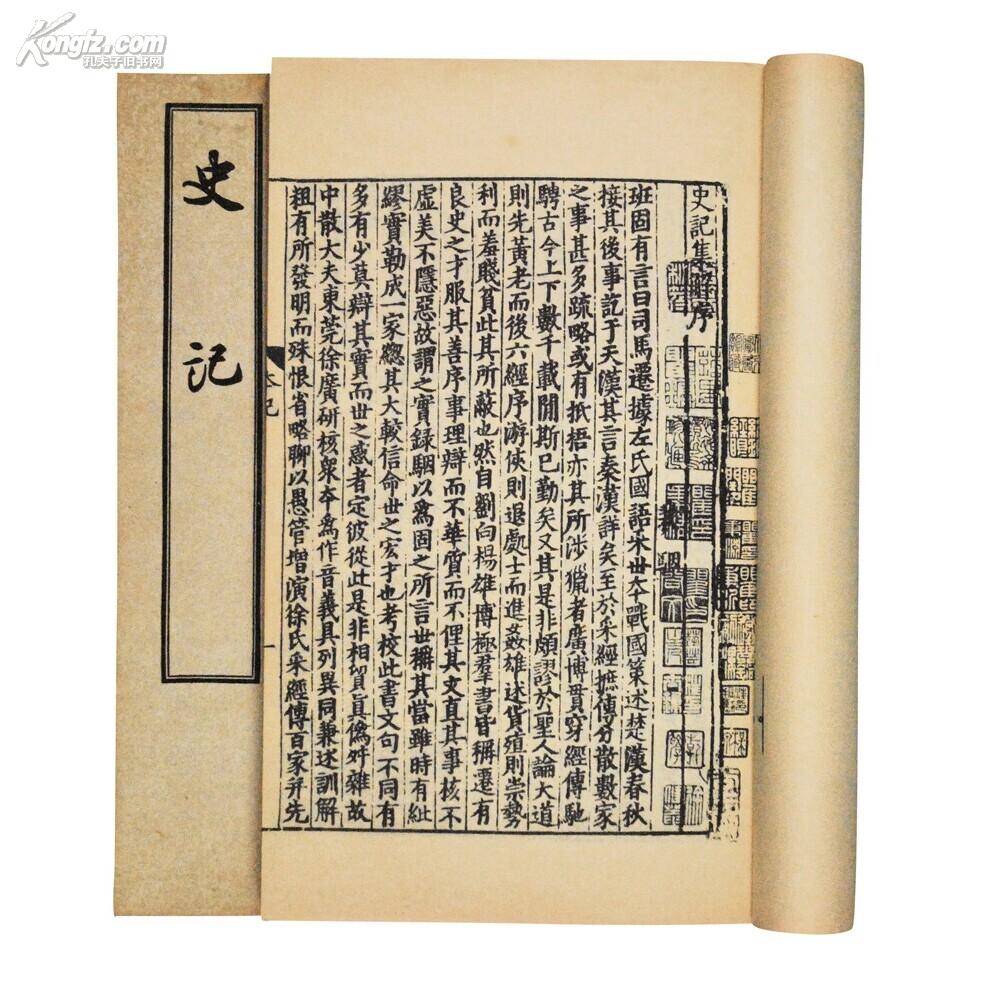 Kongfz.com
孔夫子旧书网
史記集解序
班固有言曰司馬遷據左氏國語采世本戰國策述楚漢春秋
接其後事訖于天漢其言秦漢詳矣至於采經摭傳分散數家
之事甚多疏略或有抵梧亦其所涉獵者廣博貫穿經傳馳
騁古今上下數千載閒斯已勤矣又其是非頗謬於聖人論大道
則先黃老而後六經序游俠則退處士而進姦雄述貨殖則崇勢
利而羞賤貧此其所蔽也然自劉向楊雄博極羣書皆稱遷有
良史之才服其善序事理辯而不華質而不俚其文直其事核不
虛美不隱惡故謂之實錄駰以爲固之所言世稱其當雖時有紕
繆實勒成一家緫其大較信命世之宏才也考校此書文句不同有
多有少莫辯其實而世之惑者定彼從此是非相貿眞僞舛雜故
中散大夫東莞徐廣研核衆本爲作音義具列異同兼述訓解
粗有所發明而殊恨省略聊以愚管增演徐氏采經傳百家并先
史記